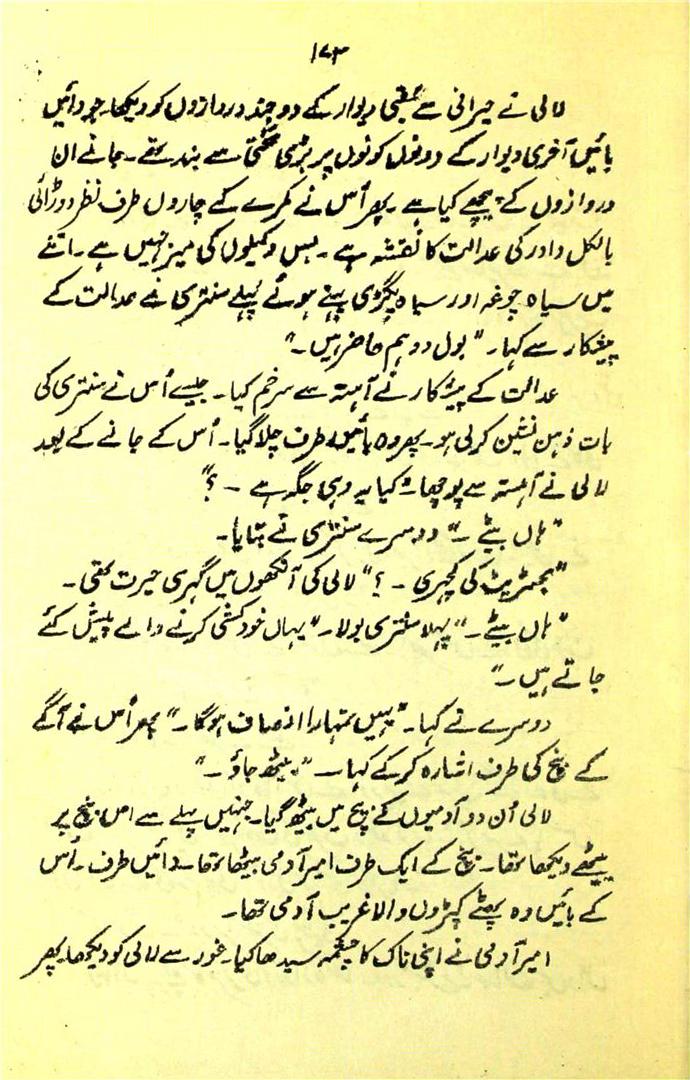 ۱۷۳
لالی نے حیرانی سے عقبی دیوار کے دو چند دروازوں کو دیکھا۔ جو دائیں
بائیں آخری دیوار کے دونوں کونوں پر بڑی سختی سے بند تھے۔ جانے ان
دروازوں کے پیچھے کیا ہے۔ پھر اُس نے کمرے کے چاروں طرف نظر دوڑائی
بالکل دادر کی عدالت کا نقشہ ہے۔ بس وکیلوں کی میز نہیں ہے۔ اتنے
میں سیاہ چوغہ اور سیاہ پگڑی پہنے ہوئے پہلے سنتری نے عدالت کے
پیشکار سے کہا۔ "بول دو ہم حاضر ہیں۔"
عدالت کے پیشکار نے آہستہ سے سر خم کیا۔ جیسے اُس نے سنتری کی
بات ذہن نشین کر لی ہو۔ پھر وہ بائیں طرف چلا گیا۔ اُس کے جانے کے بعد
لالی نے آہستہ سے پوچھا۔ "کیا یہ وہی جگہ ہے ۔ ؟"
"ہاں بیٹے ۔" دوسرے سنتری نے بتایا۔
"مجسٹریٹ کی کچہری ۔ ؟" لالی کی آنکھوں میں گہری حیرت تھی۔
"ہاں بیٹے۔" پہلا سنتری بولا۔ "یہاں خودکشی کرنے والے پیش کئے
جاتے ہیں۔"
دوسرے نے کہا۔ "یہیں تمہارا انصاف ہوگا۔" پھر اُس نے آگے
کے بنچ کی طرف اشارہ کر کے کہا ــ "بیٹھ جاؤ ۔"
لالی اُن دو آدمیوں کے بیچ میں بیٹھ گیا۔ جنہیں پہلے سے اس بنچ پر
بیٹھے دیکھا تھا۔ بنچ کے ایک طرف امیر آدمی بیٹھا تھا۔ دائیں طرف۔ اُس
کے بائیں وہ پھٹے کپڑوں والا غریب آدمی تھا۔
امیر آدمی نے اپنی ناک کا چشمہ سیدھا کیا۔ غور سے لالی کو دیکھا۔ پھر